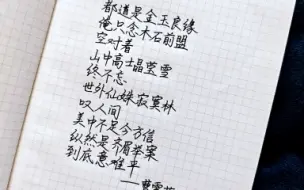 都道是金玉良缘
俺只念木石前盟
空对着
山中高士晶莹雪
终不忘
世外仙姝寂寞林
叹人间
美中不足今方信
纵然是齐眉举案
到底意难平